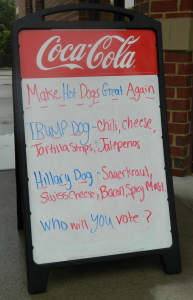 Coca-Cola
Make Hot Dogs Great Again
TRUMP DOG - Chili, cheese,
Tortilla strips, Jalepenos
Hillary Dog - Sauerkraut,
Swiss cheese, Bacon, Spicy Must.
WHO will YOU vote?